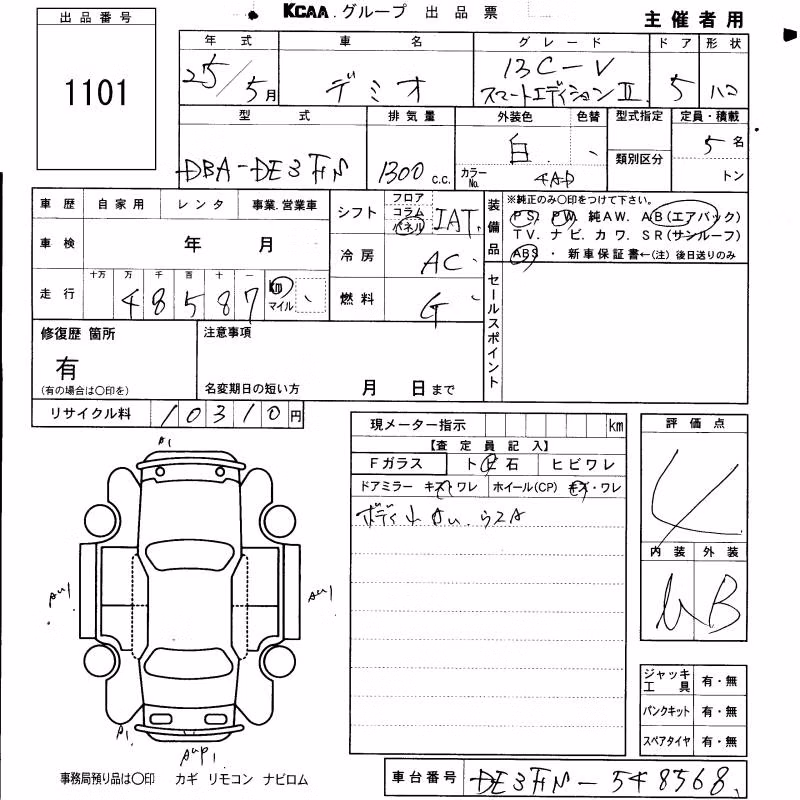 出品番号
1101
KCAA グループ 出品票
主催者用
年式 車名 グレード ドア 形状
25/5月 デミオ 13C-V スマートエディションⅡ 5 ハコ
型式 排気量 外装色 色替 型式指定 定員・積載
類別区分
DBA-DE3FS 1300 c.c. 白 カラーNo. 5名
トン
車歴 自家用 レンタ 事業.営業車
車検 年 月
走行 十万 万 千 百 十 一
48587 km マイル
シフト フロア コラム パネル IAT
冷房 AC
燃料 G
装備品
※純正のみ〇印をつけて下さい。
PS. PW. 純AW. AB(エアバック)
TV. ナビ. カワ. SR(サンルーフ)
ABS ・ 新車保証書←(注) 後日送りのみ
セールスポイント
修復歴 箇所
有
(有の場合は〇印を)
注意事項
名変期日の短い方 月 日まで
リサイクル料 10310円
現メーター指示 km
【査定員記入】
Fガラス ト 石 ヒビワレ
ドアミラー キズ ワレ ホイール(CP) キズ・ワレ
ボディ小
評価点
4
内装 外装
B
ジャッキ工具 有・無
パンクキット 有・無
スペアタイヤ 有・無
A1
AU1
AU1
A1
事務局預り品は〇印 カギ リモコン ナビロム
車台番号 DE3FS-548568